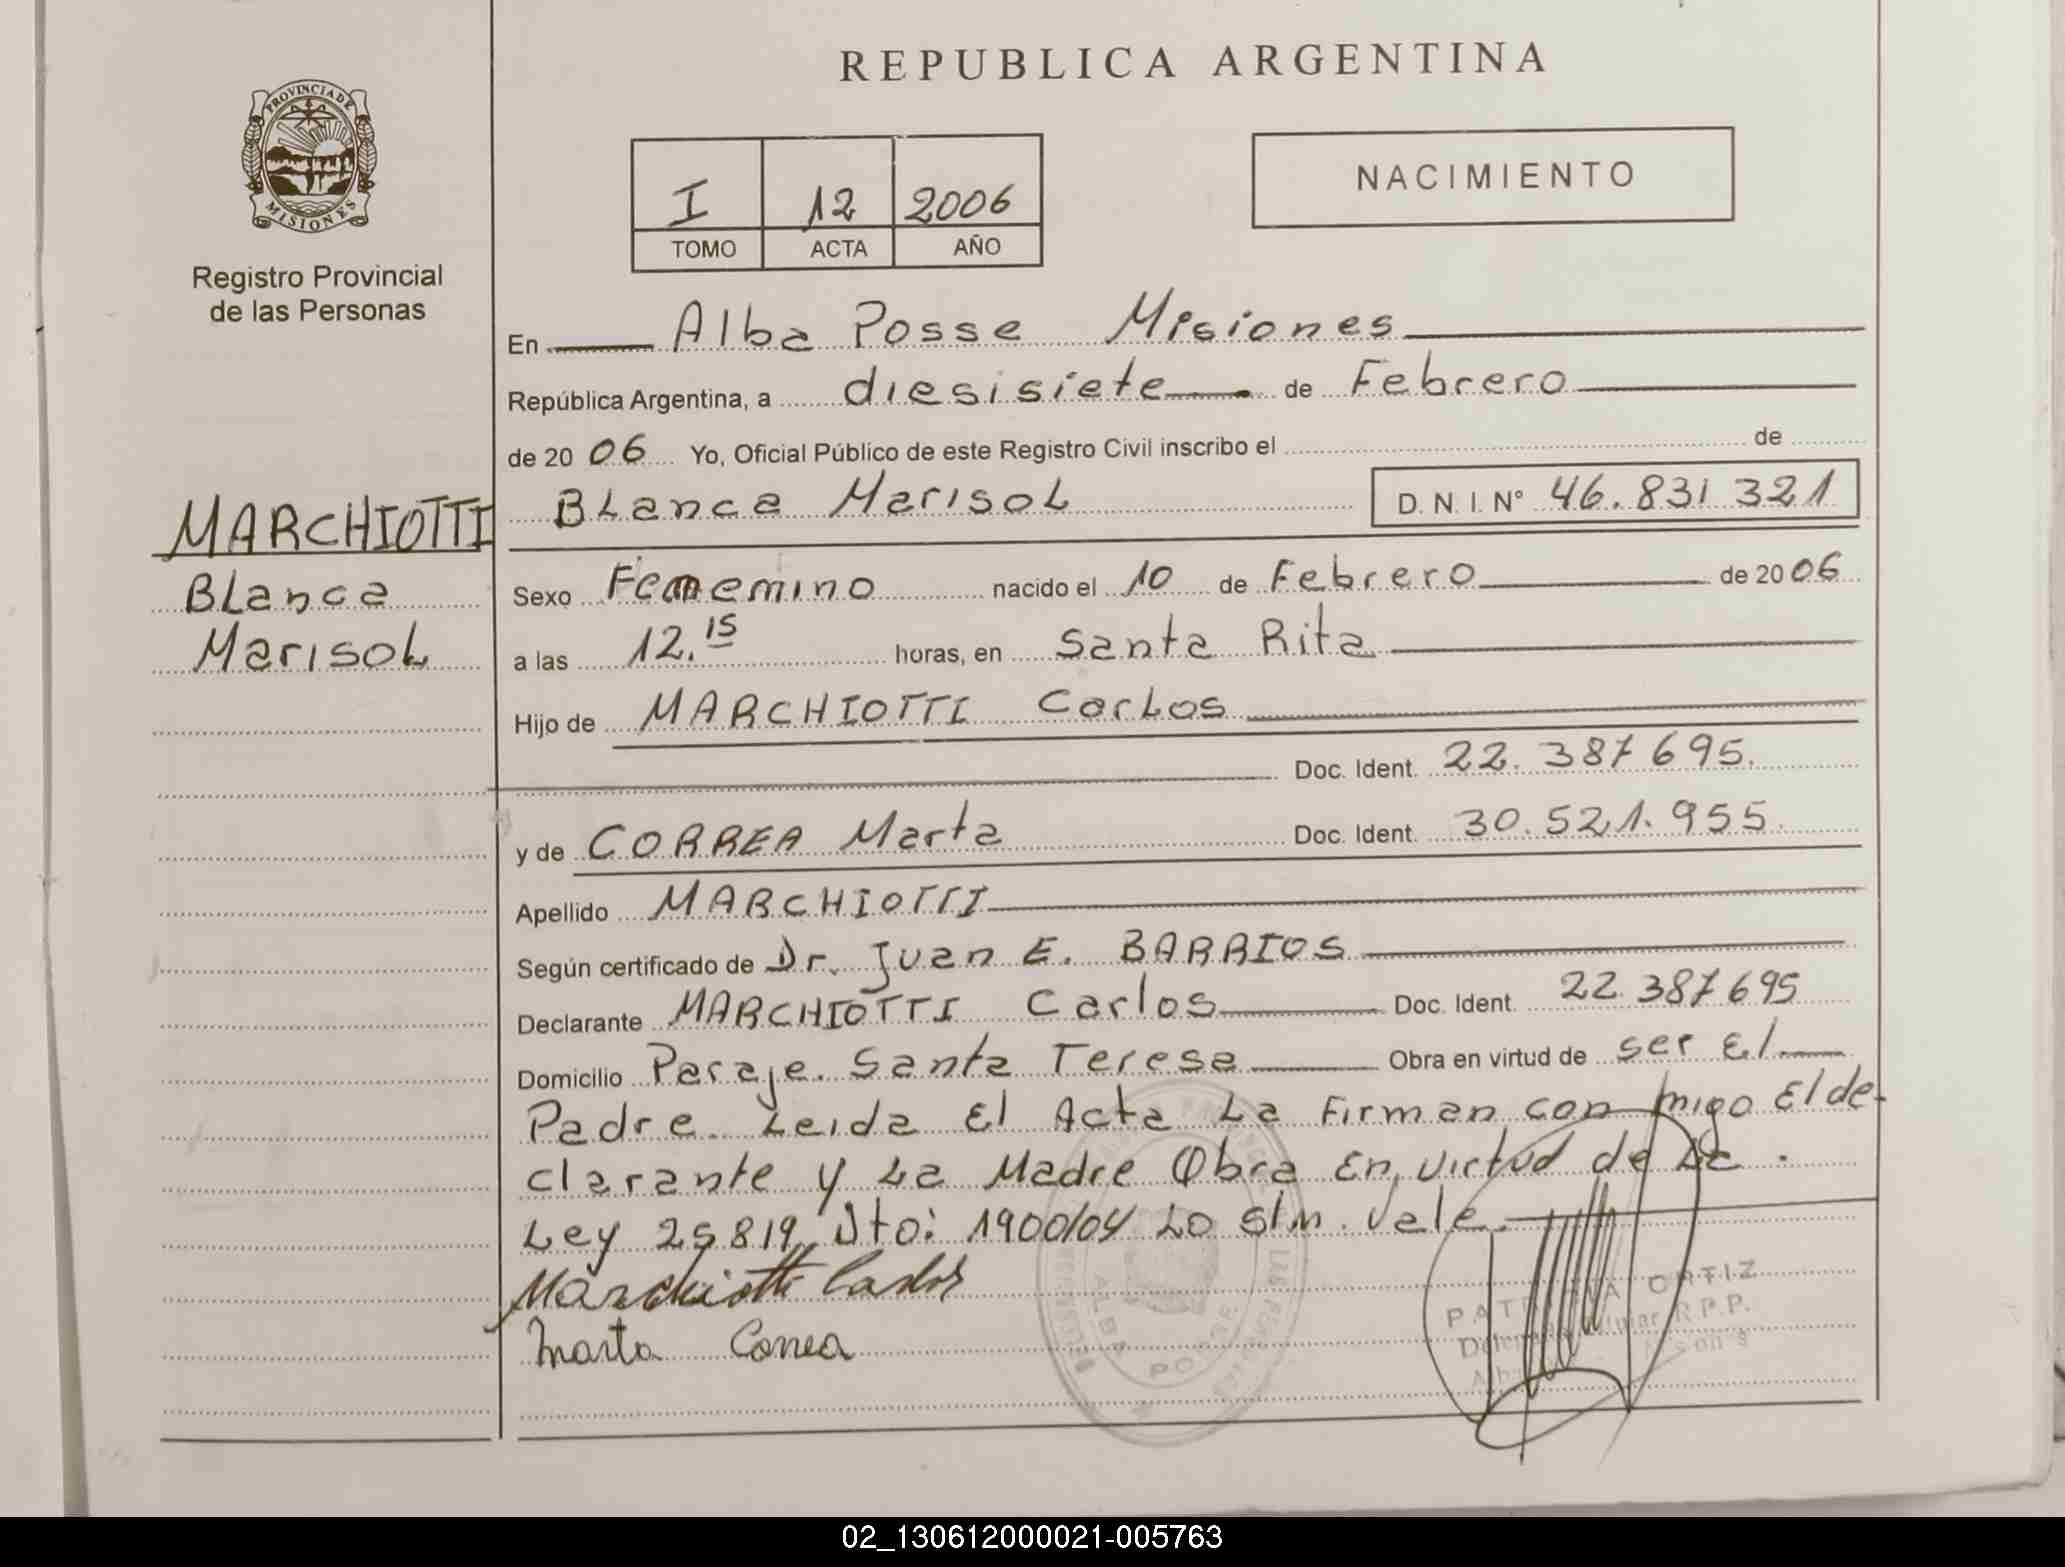 REPUBLICA ARGENTINA
PROVINCIA DE
MISIONES
Registro Provincial
de las Personas
I 12 2006
TOMO ACTA AÑO
NACIMIENTO
En Alba Posse Misiones
República Argentina, a diesisiete de Febrero
de 20 06 Yo, Oficial Público de este Registro Civil inscribo el de
Blanca Marisol D.N.I. Nº 46.831.321
MARCHIOTTI
Blanca
Marisol
Sexo Fememino nacido el 10 de Febrero de 20 06
a las 12.15 horas, en Santa Rita
Hijo de MARCHIOTTI Carlos
Doc. Ident. 22.387695.
y de CORREA Marta Doc. Ident. 30.521.955
Apellido MARCHIOTTI
Según certificado de Dr. Juan E. BARRIOS
Declarante MARCHIOTTI Carlos Doc. Ident. 22.387695
Domicilio Paraje Santa Teresa Obra en virtud de ser El
Padre. Leida El Acta La Firman con migo El de-
clarante y La Madre Obra En virtud de La.
Ley 25819 Dto: 1900/04 Lo s/n. Vale.
Marchiotti Carlos
Marta Correa
ALBA POSSE
ORTIZ
R.P.P.
02_130612000021-005763